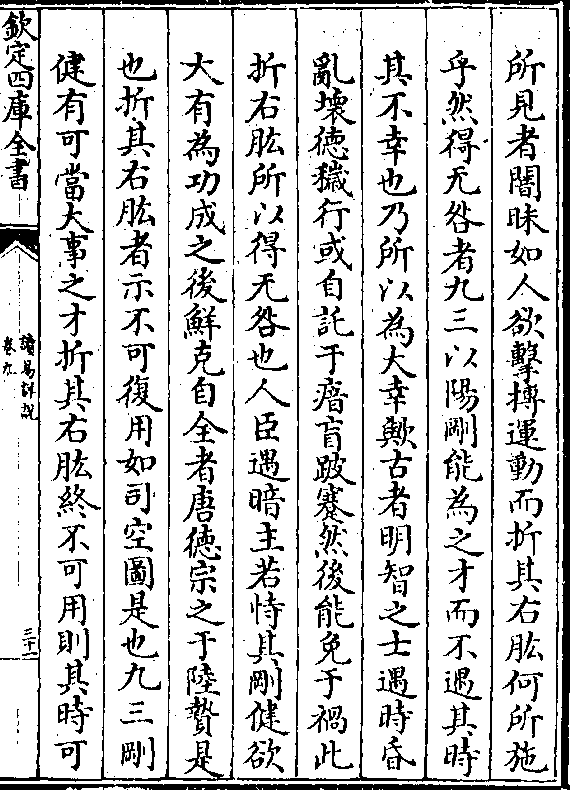 所見者闇昧如人欲擊搏運動而折其右肱何所施
乎然得无咎者九三以陽剛能為之才而不遇其時
其不幸也乃所以為大幸歟古者明智之士遇時昏
亂壞徳穢行或自託于瘖盲跛蹇然後能免于禍此
折右肱所以得无咎也人臣遇暗主若恃其剛健欲
大有為功成之後鮮克自全者唐徳宗之于陸贄是
也折其右肱者示不可復用如司空圖是也九三剛
健有可當大事之才折其右肱終不可用則其時可
欽定四庫全書
讀易詳說
卷九
三十一